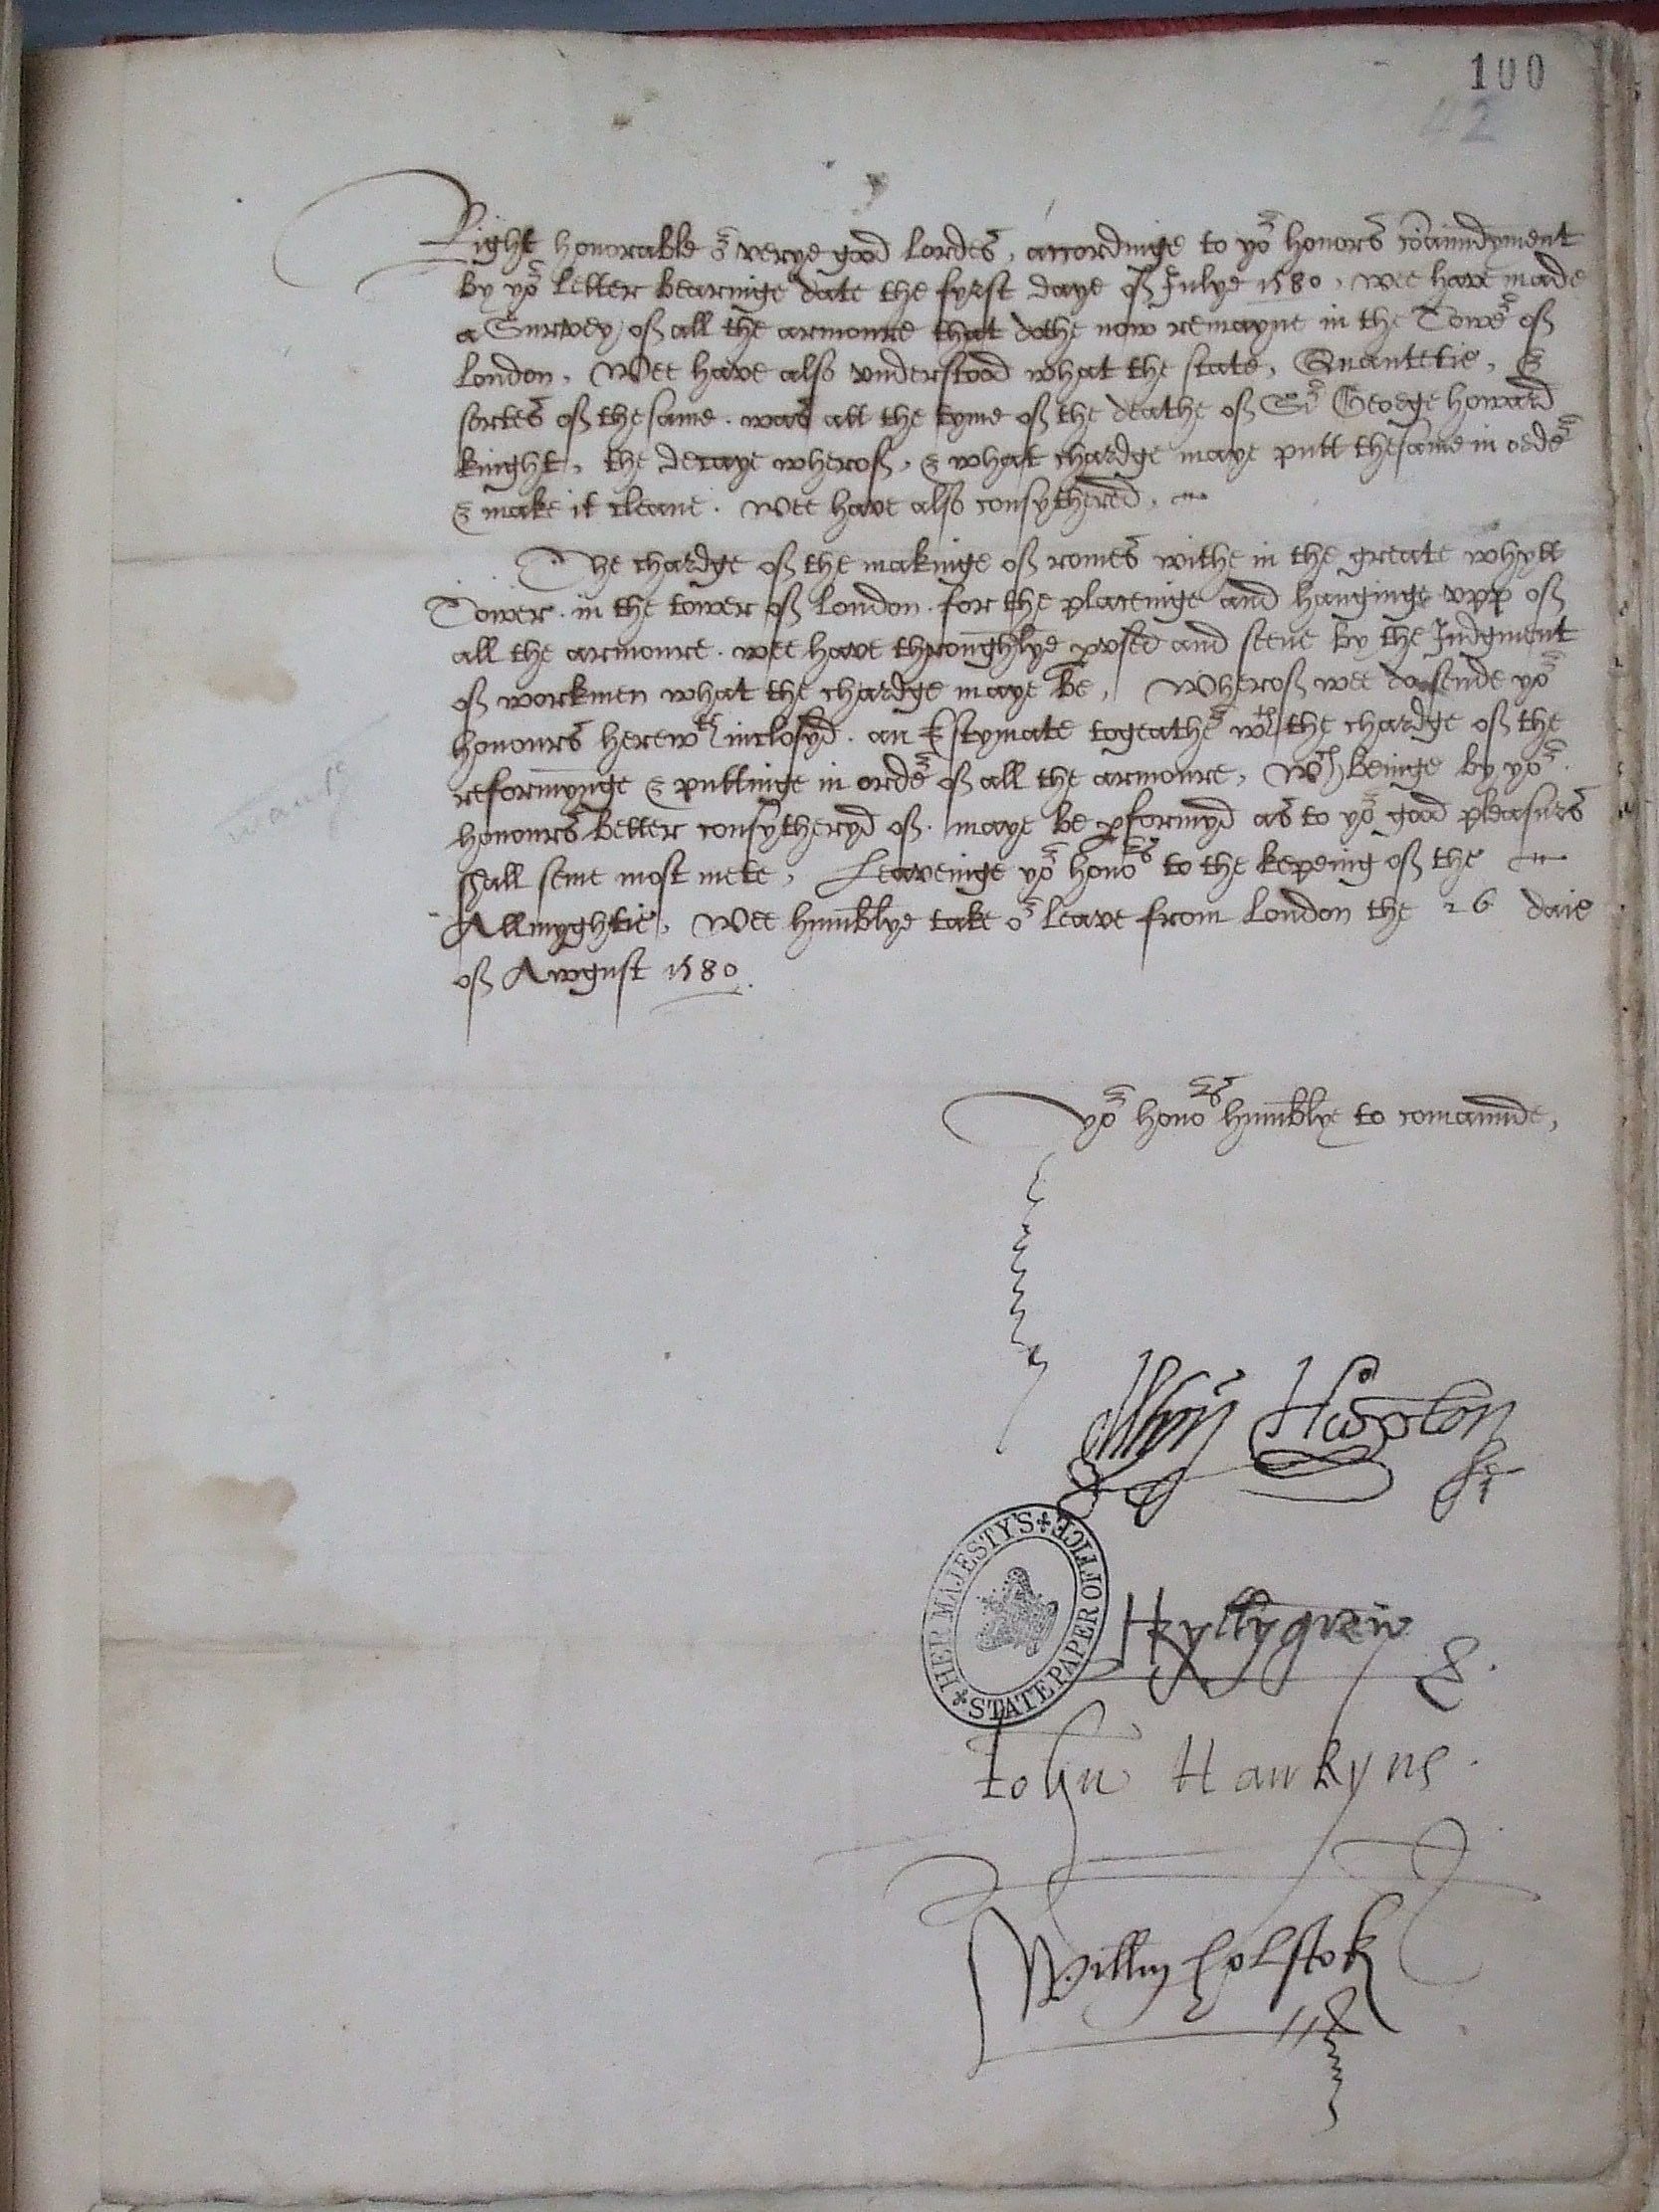 100
42
Right honorable & verye good Lordes, accordinge to yor honors comaundyment
by yor Letter bearinge date the fyrst daye of Julye 1580, wee have made
a Survey of all the armoure that dothe now remayne in the Tower of
London, Wee have also understood what the state, Quantetie, &
sortes of the same was att the tyme of the deathe of Sr George Howard
knight, the decaye wherof, & what chardge maye putt the same in order
& make it cleane. Wee have also consythered,
The chardge of the makinge of romes withe in the greate whytt
Tower. in the tower of London. for the placeinge and hanginge upp of
all the armoure. wee have throughlye pused and seene by the Judgment
of workmen what the chardge maye be, Wherof wee do sende yor
honours herewth inclosyd. an Estymate togeather wth the chardge of the
reformynge & puttinge in order of all the armoure, Wch beinge by yor
honours better consytheryd of. maye be pformyd as to yor good pleasurs
shall seme most mete, Leaveinge yor honors to the kepeing of the
Allmyghtie, Wee humblye take or leave from London the 26 daie
of Awgust 1580.
yor honors humblye to comaunde,
Hopton
HER MAJESTY'S STATE PAPER OFFICE
Hkyllygrew
John Hawkyns.
Willm Holstok